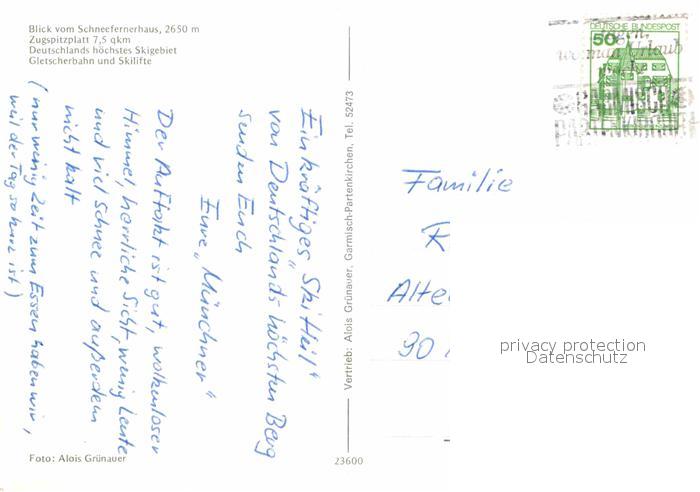 Blick vom Schneefernerhaus, 2650 m
Zugspitzplatt 7,5 qkm
Deutschlands höchstes Skigebiet
Gletscherbahn und Skilifte
Ein kräftiges „Ski Heil"
von Deutschlands höchsten Berg
senden Euch
Eure „Münchner"
Der Auftakt ist gut, wolkenloser
Himmel, herrliche Sicht, wenig Leute
und viel Schnee und außerdem
nicht kalt
(nur wenig Zeit zum Essen haben wir,
weil der Tag so kurz ist)
Foto: Alois Grünauer
Vertrieb: Alois Grünauer, Garmisch-Partenkirchen, Tel. 52473
23600
DEUTSCHE BUNDESPOST
50
Urlaub
GARMISCH
PARTENKIRCHEN
Familie
R
Alte
90
privacy protection
Datenschutz